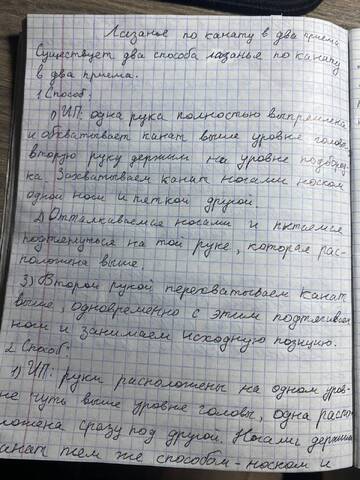 Лазанье по канату в два приема
Существует два способа лазанье по канату
в два приема.
1 Способ:
1) ИП: одна рука полностью выпрямлена
и обхватывает канат выше уровне головы,
вторую руку держим на уровне подбород-
ка. Захватываем канат ногами носком
одной ноги и пяткой другой.
2) Отталкиваемся ногами и пытаемся
подтянуться на той руке, которая рас-
положена выше.
3) Второй рукой перехватываем канат
выше, одновременно с этим подтягиваем
ноги и занимаем исходную позицию.
2 Способ:
1) ИП: руки расположены на одном уров-
не чуть выше уровне головы, одна распо-
ложена сразу под другой. Ногами держим
канат тем же способом - носком и